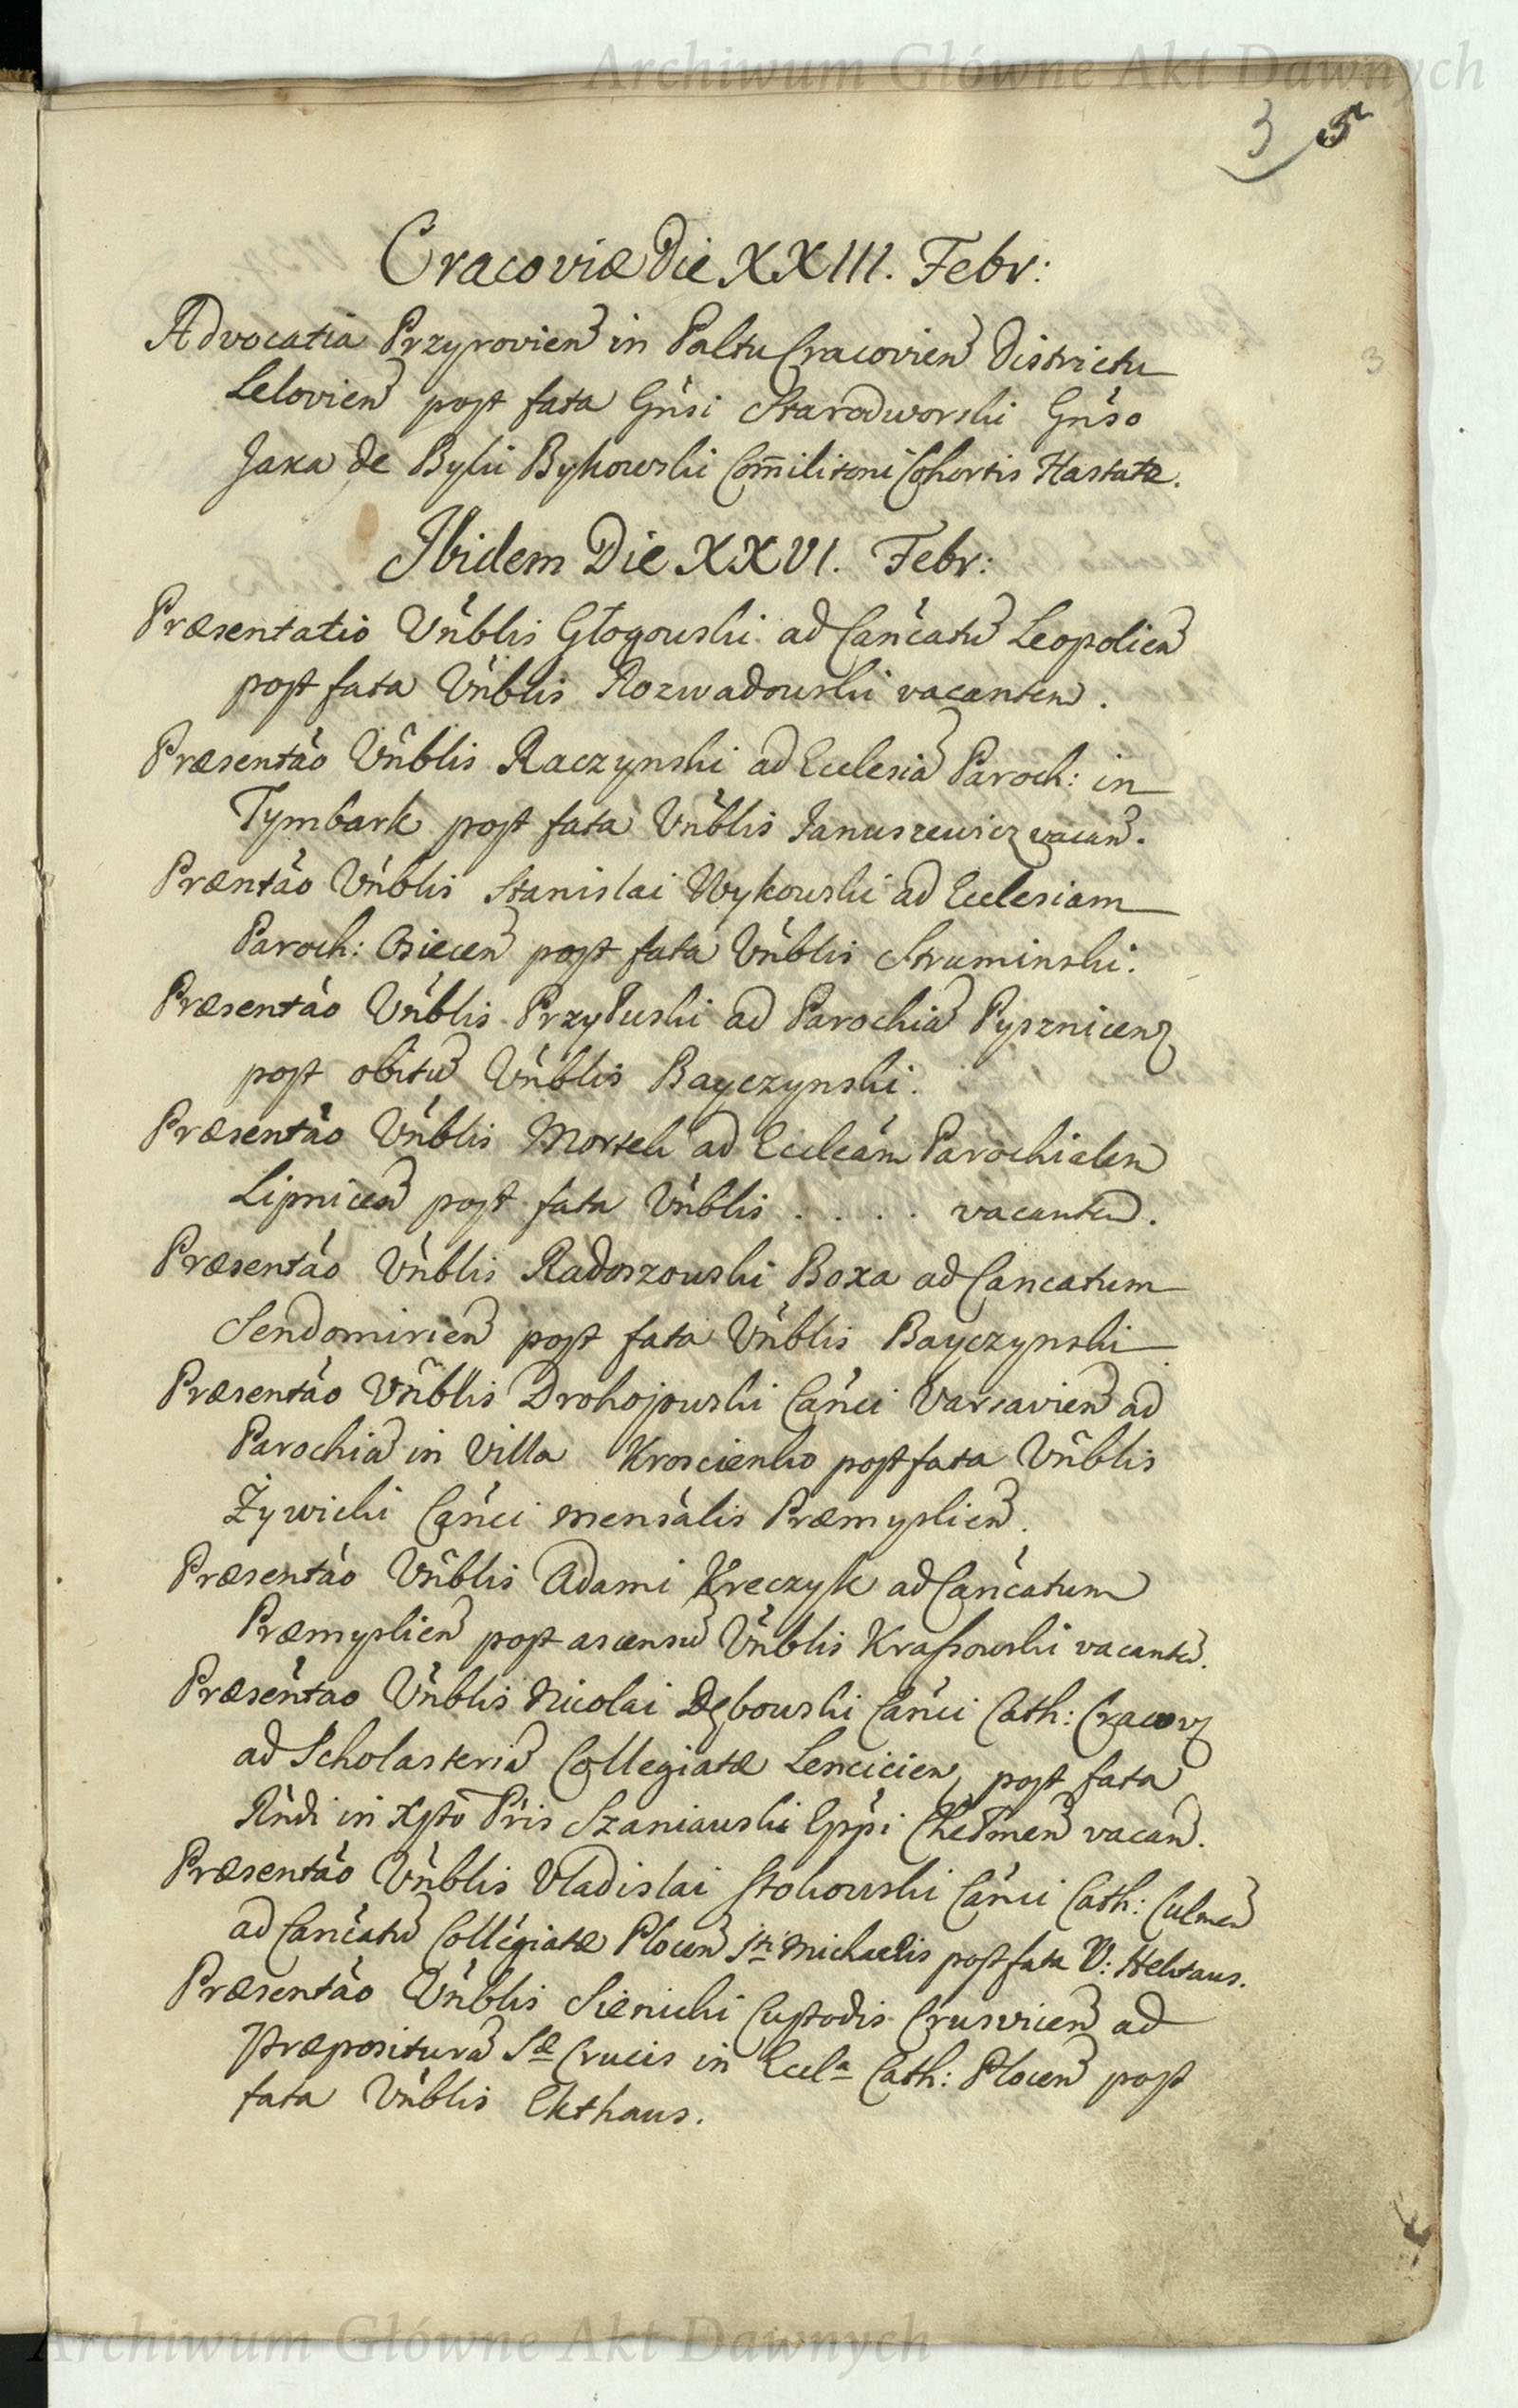 Archiwum Główne Akt Dawnych
3 5
3
Cracoviæ Die XXIII. Febr:
Advocatia Przyrovien in Paltu Cracovien Districtu
Lelovien post fata Gn̄si Starodworski Gn̄so
Jaxa de Byki Bykowski Com̄ilitoni Cohortis Hastatæ.
Ibidem Die XXVI. Febr:
Præsentatio Vn̄blis Głogowski ad Can̄catū Leopolien
post fata Vn̄blis Rozwadowski vacantem.
Præsentāo Vn̄blis Raczynski ad Ecclesiā Paroch: in
Tymbark post fata Vn̄blis Januszewicz vacan.
Præntāo Vn̄blis Stanislai Wykowski ad Ecclesiam
Paroch: Osiecen post fata Vn̄blis Struminski.
Præsentāo Vn̄blis Przyłuski ad Parochiā Pysznicen
post obitū Vn̄blis Bayczynski.
Præsentāo Vn̄blis ad Eccleām Parochialem
Lipnicen post fata Vn̄blis . . . . vacantem.
Præsentāo Vn̄blis Radoszowski Boxa ad Cancatum
Sendomirien post fata Vn̄blis Bayczynski
Præsentāo Vn̄blis Drohojowski Can̄ci Varsavien ad
Parochiā in Villa Kroscienko post fata Vn̄blis
Żywicki Can̄ci mensālis Præmyslien.
Præsentāo Vn̄blis Adami Kreczyk ad Can̄catum
Præmyslien post ascensū Vn̄blis Krassowski vacantē.
Præsen̄tao Vn̄blis Nicolai Dębowski Can̄ci Cath: Cracov
ad Scholasteriā Collegiatæ Lencicien, post fata
Rn̄di in Xsto Pr̄is Szaniawski Epp̄i Chełmen vacan.
Præsentāo Vn̄blis Vladislai Stokowski Can̄ci Cath: Culmen
ad Can̄catū Collegiatæ Plocen Sti Michaelis post fata V: Hektaus.
Præsentāo Vn̄blis Sienicki Custodis Crusvicien ad
Præpositurā Sæ Crucis in Eccla Cath: Plocen post
fata Vn̄blis Ekthaus.
Archiwum Główne Akt Dawnych